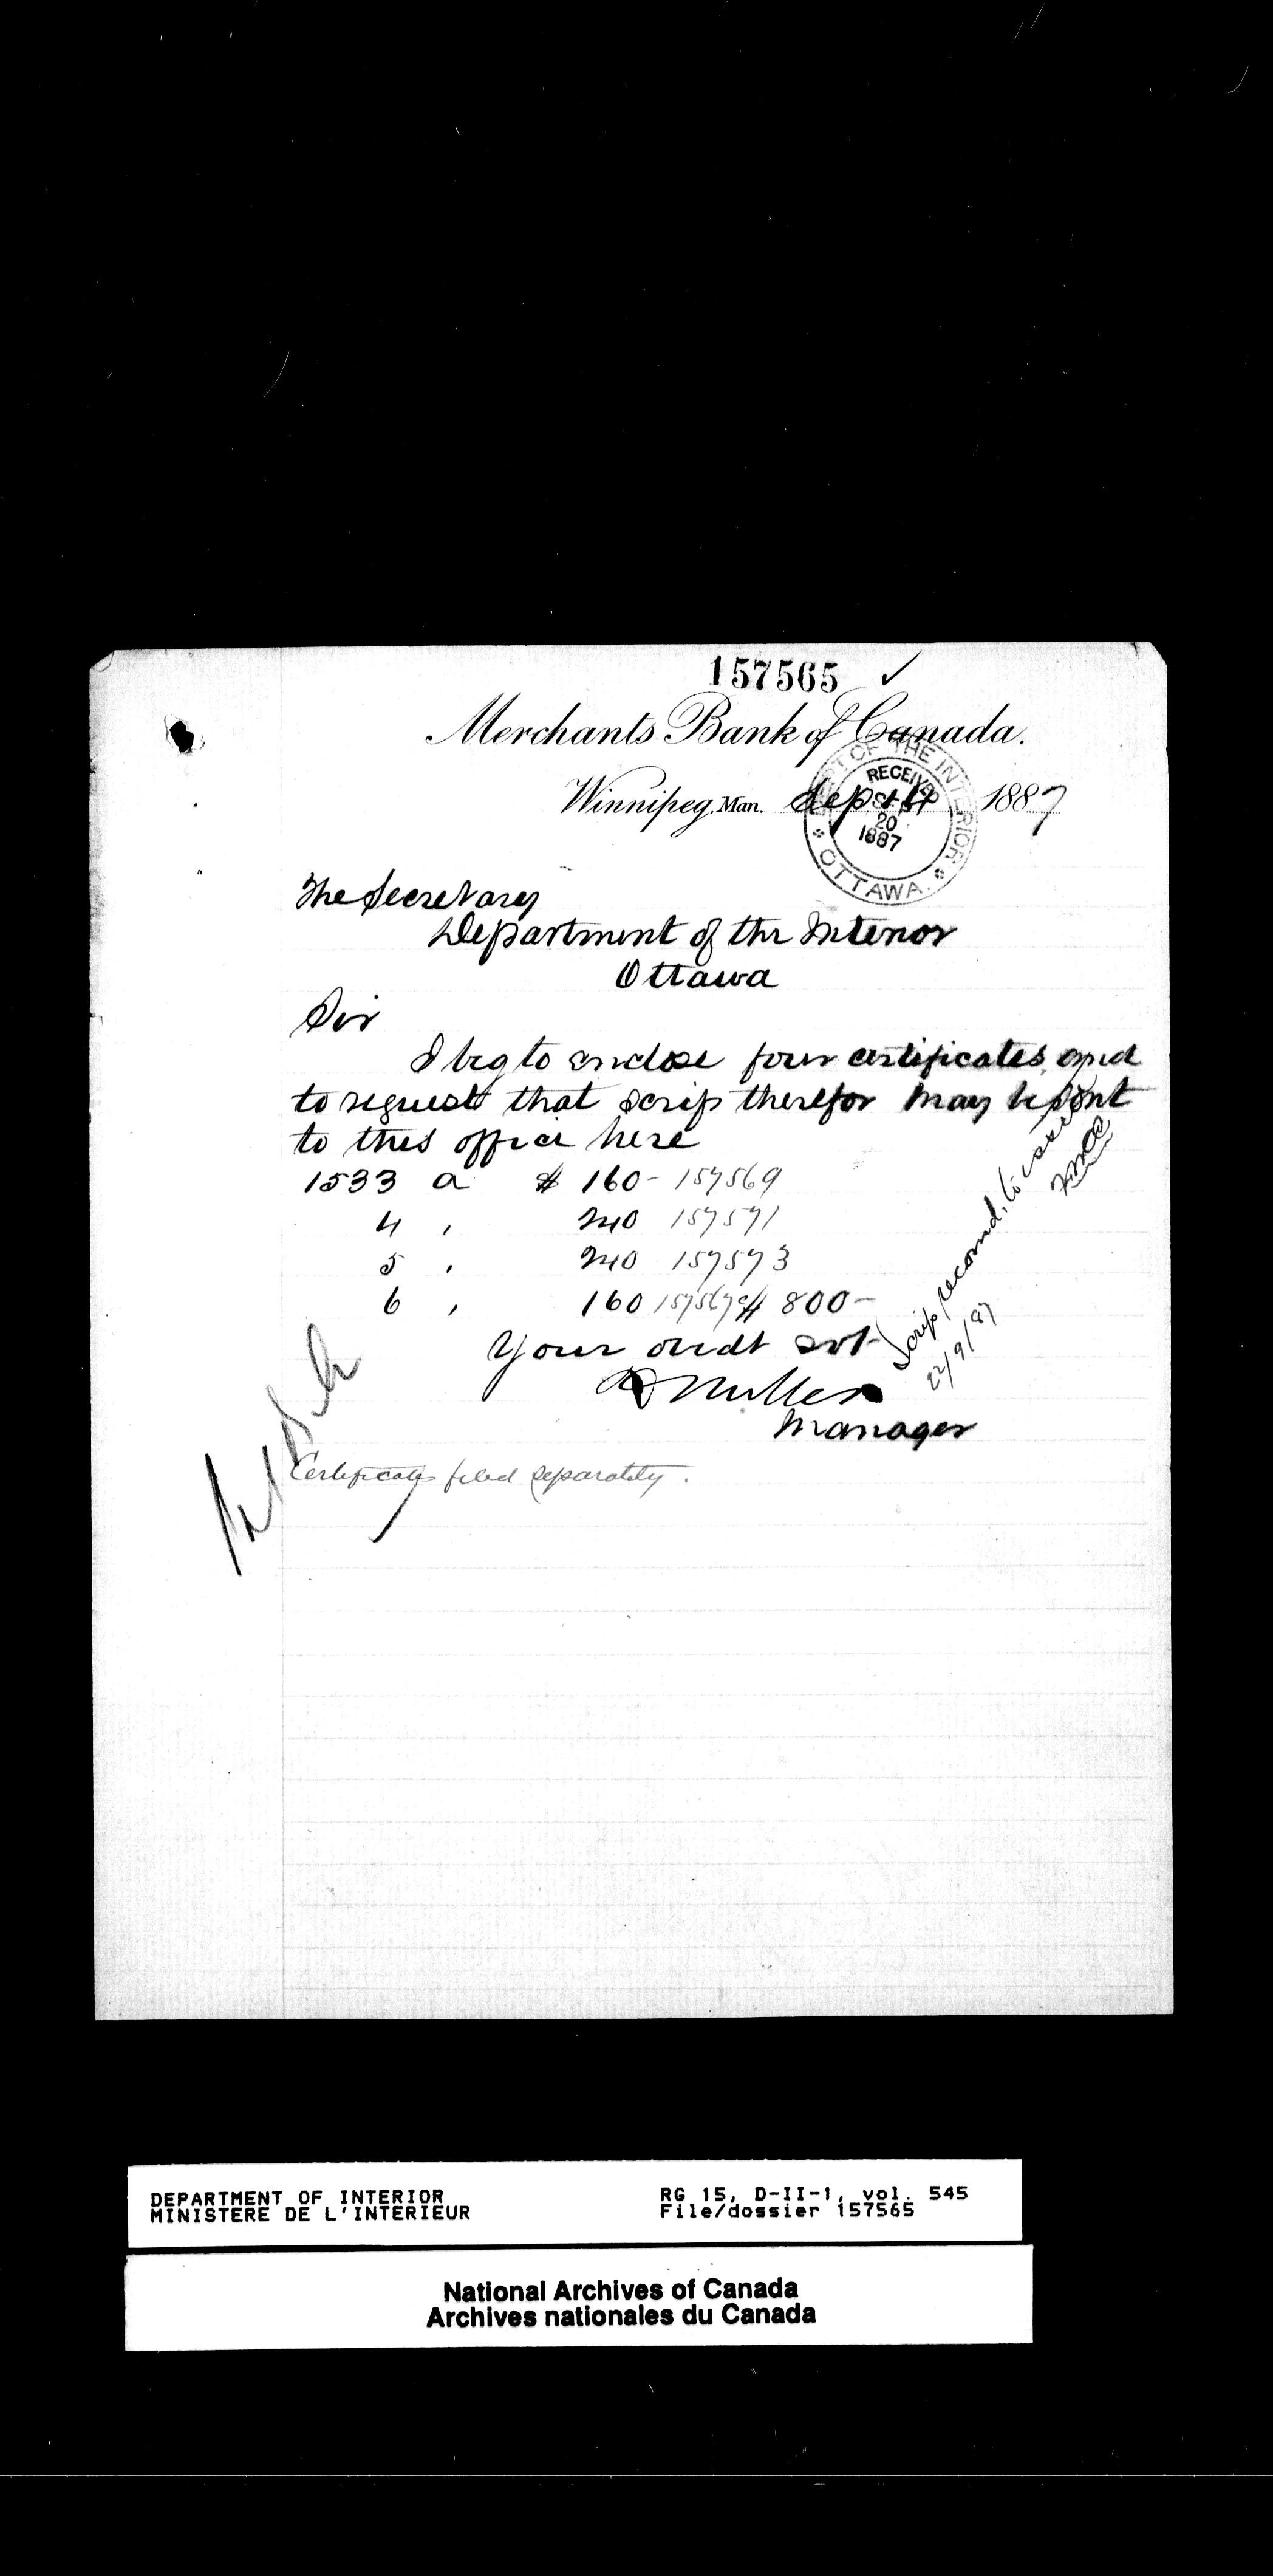 157565 ✓
Merchants Bank of Canada.
Winnipeg, Man. Sept 14 1887
DEPT OF THE INTERIOR
RECEIVED
SEP
20
1887
OTTAWA.
The Secretary
Department of the Interior
Ottawa
Sir
I beg to enclose four certificates and
to request that scrip therefor may be sent
to this office here
1533 a $ 160- 157569
4 , 240 157571
5 , 240 157573
6 , 160 157567 $ 800-
Your obdt svt
Miller
Manager
Scrip recomd. to issue
22/9/87
Certificates filed separately.
DEPARTMENT OF INTERIOR
MINISTERE DE L'INTERIEUR
RG 15, D-II-1, vol. 545
File/dossier 157565
National Archives of Canada
Archives nationales du Canada